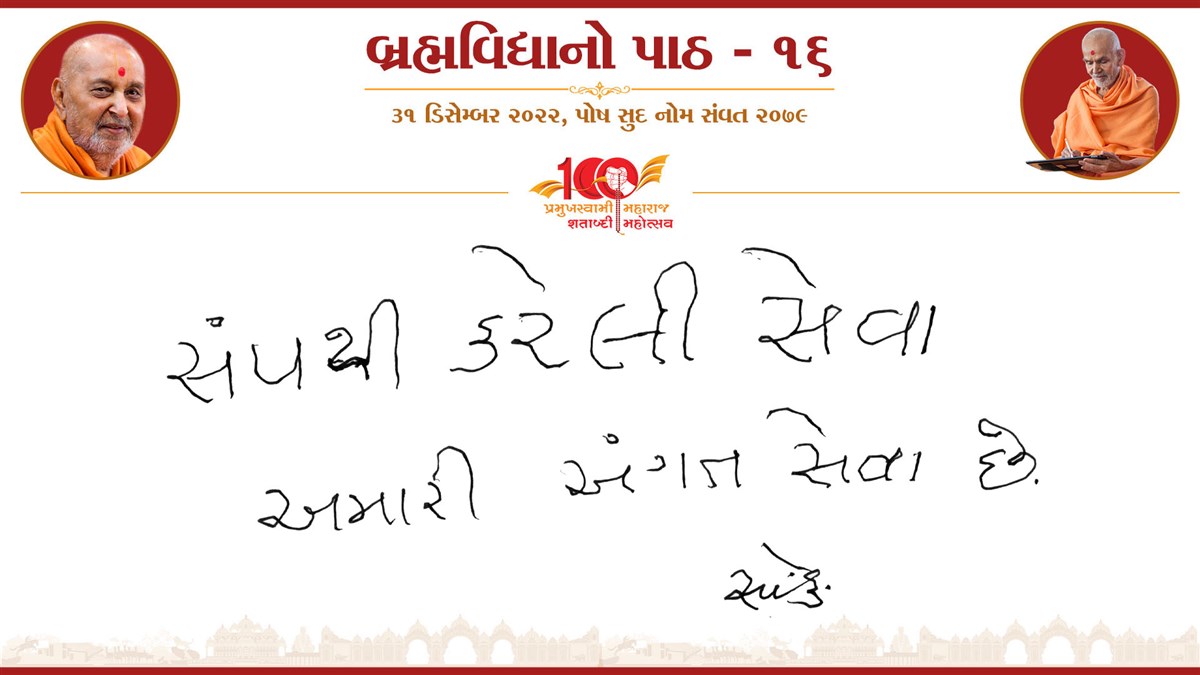 બ્રહ્મવિદ્યાનો પાઠ - ૧૬
૩૧ ડિસેમ્બર ૨૦૨૨, પોષ સુદ નોમ સંવત ૨૦૭૯
100
પ્રમુખસ્વામી મહારાજ
શતાબ્દી મહોત્સવ
સંપથી કરેલી સેવા
અમારી અંગત સેવા છે.